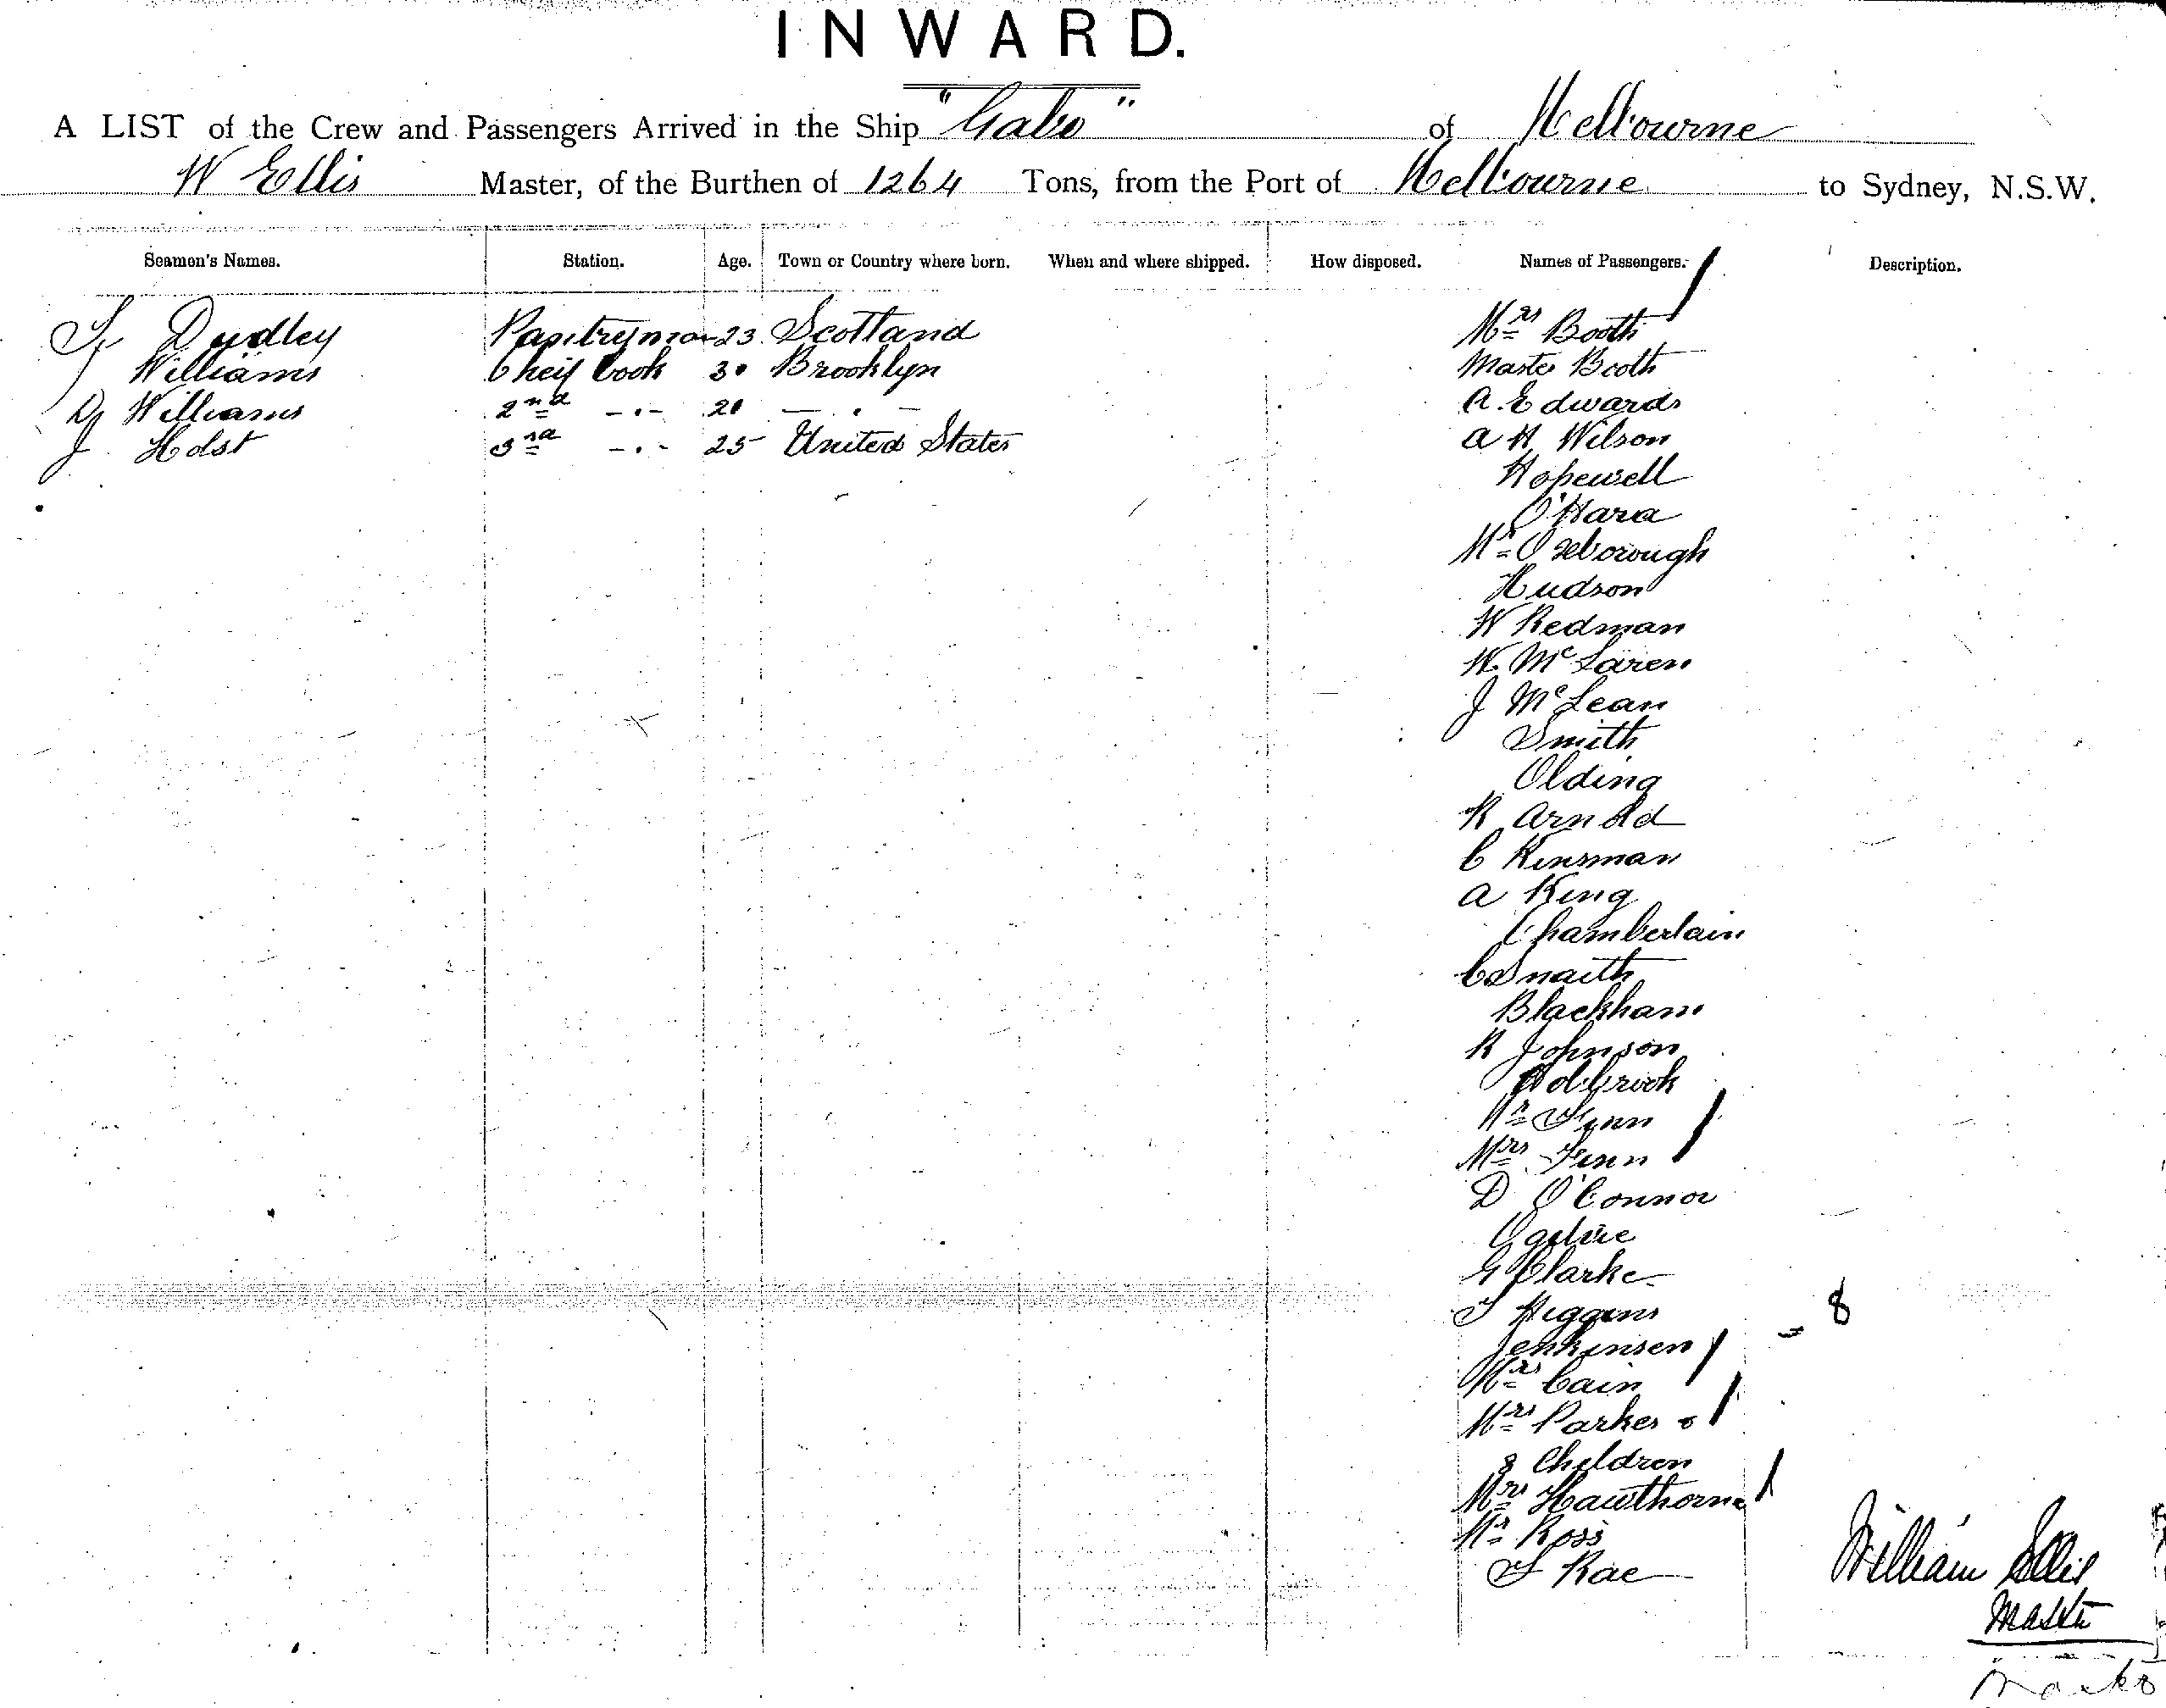 INWARD.
A LIST of the Crew and Passengers Arrived in the Ship "Gabo" of Melbourne
W Ellis Master, of the Burthen of 1264 Tons, from the Port of Melbourne to Sydney, N.S.W.
Seamen's Names. Station. Age. Town or Country where born. When and where shipped. How disposed. Names of Passengers. Description.
Dudley Pantryman 23 Scotland Mrs Booth
Williams Cheif Cook 30 Brooklyn Master Booth
Williams 2nd -.- 20 - . - A. Edwards
J Holst 3rd -.- 25 United States A H Wilson
Hopewell
O'Hara
Mr Oxeborough
Hudson
W Redman
W. McLaren
J McLean
Smith
Olding
R Arnold
C Kinsman
A King
Chamberlain
C Snaith
Blackham
R Johnson
Holbrook
Mr Finn
Mrs Finn
D O'Connor
Ogilvie
G Clarke
T Higgins
= 8
Jenkinsen
Mrs Cain
Mrs Parker &
3 Children
Mrs Hawthorne
Mr Ross
T Rae
William Ellis
Master